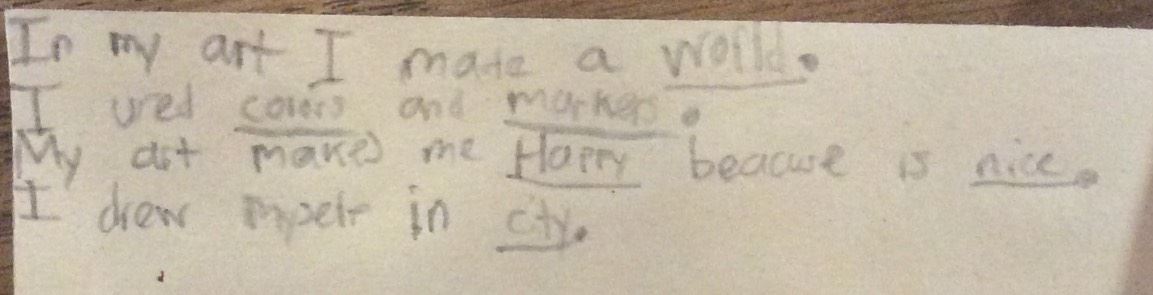 In my art I made a world.
I used colors and markers.
My art makes me Happy beacuse is nice.
I drew myself in city.